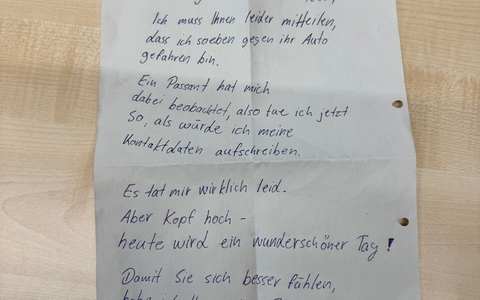 Ich muss Ihnen leider mitteilen,
dass ich soeben gegen ihr Auto
gefahren bin.
Ein Passant hat mich
dabei beobachtet, also tue ich jetzt
So, als würde ich meine
Kontaktdaten aufschreiben.
Es tat mir wirklich leid.
Aber Kopf hoch -
heute wird ein wunderschöner Tag!
Damit Sie sich besser fühlen,